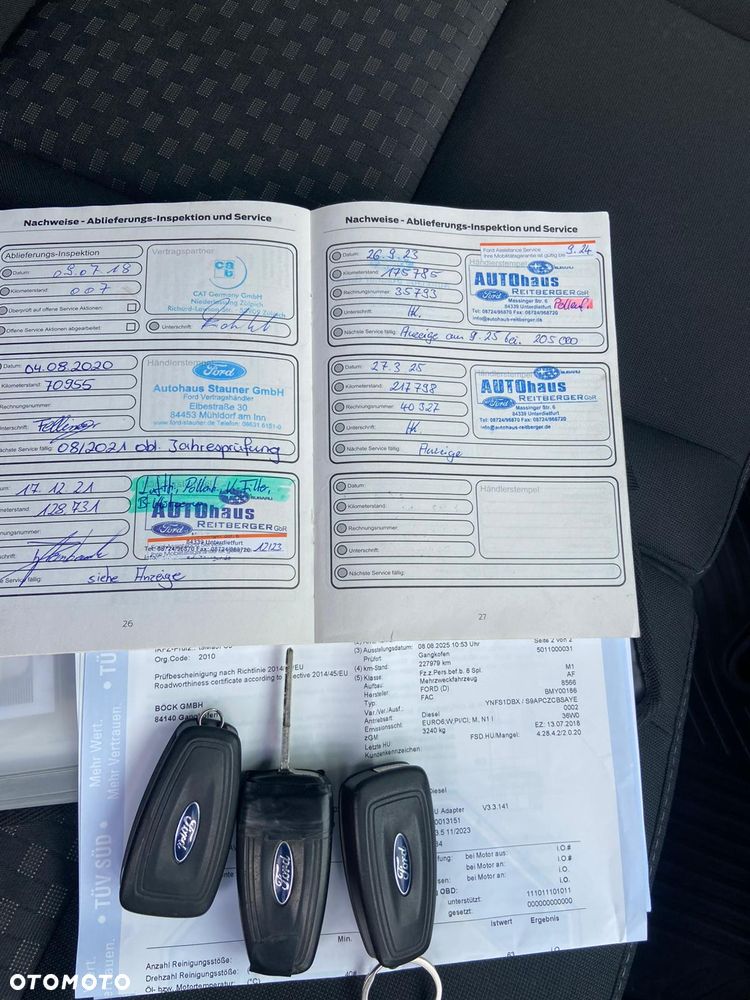 Nachweise - Ablieferungs-Inspektion und Service
Ablieferungs-Inspektion
Datum: 05.07.18
Kilometerstand: 007
Überprüft auf offene Service Aktionen:
Offene Service Aktionen abgearbeitet:
Vertragspartner
CAT Germany GmbH
Niederlassung Zülpich
Unterschrift:
Datum: 04.08.2020
Kilometerstand: 70955
Rechnungsnummer:
Unterschrift:
Nächste Service fällig: 08/2021 obl. Jahresprüfung
Händlerstempel
Ford
Autohaus Stauner GmbH
Ford Vertragshändler
Elbestraße 30
84453 Mühldorf am Inn
17.12.21
128 731
siehe Anzeige
AUTOhaus
REITBERGER GbR
Ford
SUBARU
84339 Unterdietfurt
Tel: 08724/96870 Fax: 08724/968720
12/23
26
Nachweise - Ablieferungs-Inspektion und Service
Datum: 26.9.23
Kilometerstand: 175785
Rechnungsnummer: 35793
Unterschrift:
Nächste Service fällig: Anzeige am 9.25 bei 205000
Ford Assistance Service
Ihre Mobilitätsgarantie ist gültig bis 9.24
Händlerstempel
SUBARU
AUTOhaus
Ford REITBERGER GbR
Massinger Str. 6
84339 Unterdietfurt
Tel: 08724/96870 Fax: 08724/968720
info@autohaus-reitberger.de
Datum: 27.3.25
Kilometerstand: 217798
Rechnungsnummer: 40327
Unterschrift:
Nächste Service fällig: Anzeige
SUBARU
AUTOhaus
Ford REITBERGER GbR
Massinger Str. 6
84339 Unterdietfurt
Tel: 08724/96870 Fax: 08724/968720
info@autohaus-reitberger.de
Datum:
Kilometerstand:
Rechnungsnummer:
Unterschrift:
Nächste Service fällig:
Händlerstempel
27
Org.Code: 2010
Prüfbescheinigung nach Richtlinie 2014/45/EU
Roadworthiness certificate according to directive 2014/45/EU
BÖCK GMBH
84140 Gangkofen
Seite 2 von 2
(3) Ausstellungsdatum: 08.08.2025 10:53 Uhr
5011000031
Prüfort: Gangkofen
(4) km-Stand: 227979 km
(5) Klasse: Fz.z.Pers.bef.b. 8 Spl. M1
Aufbau: Mehrzweckfahrzeug AF
Hersteller: FORD (D) 8566
Typ: FAC BMY00186
Var./Ver./Ausf.: YNFS1DBX / S9APCZCBSAYE
Antriebsart: Diesel 0002
Emissionsschl: EURO6,W,PI/CI; M, N1 I 36W0
zGM 3240 kg EZ: 13.07.2018
Letzte HU FSD.HU/Mangel: 4.28.4.2/2.0.20
Kunzenkennzeichen:
Diesel
U Adapter V3.3.141
0013151
3.5 11/2023
bei Motor aus: I.O.#
bei Motor an: I.O.#
bei Motor an: I.O.
OBD: 111011101011
unterstützt: 000000000000
gesetzt:
Istwert Ergebnis
Min.
Anzahl Reinigungsstöße:
Drehzahl Reinigungsstöße:
Öl- bzw. Motortemperatur: (°C)
Mehr Wert.
Mehr Vertrauen.
TÜV SÜD
Ford
Ford
Ford
OTOMOTO